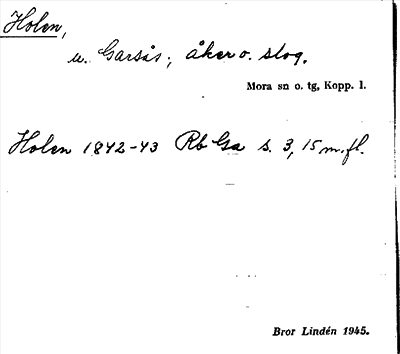 Holen,
u. Garsås; åker o. slog.
Mora sn o. tg, Kopp. l.
Holen 1842-43 Rb Ga s. 3, 15 m.fl.
Bror Lindén 1945.